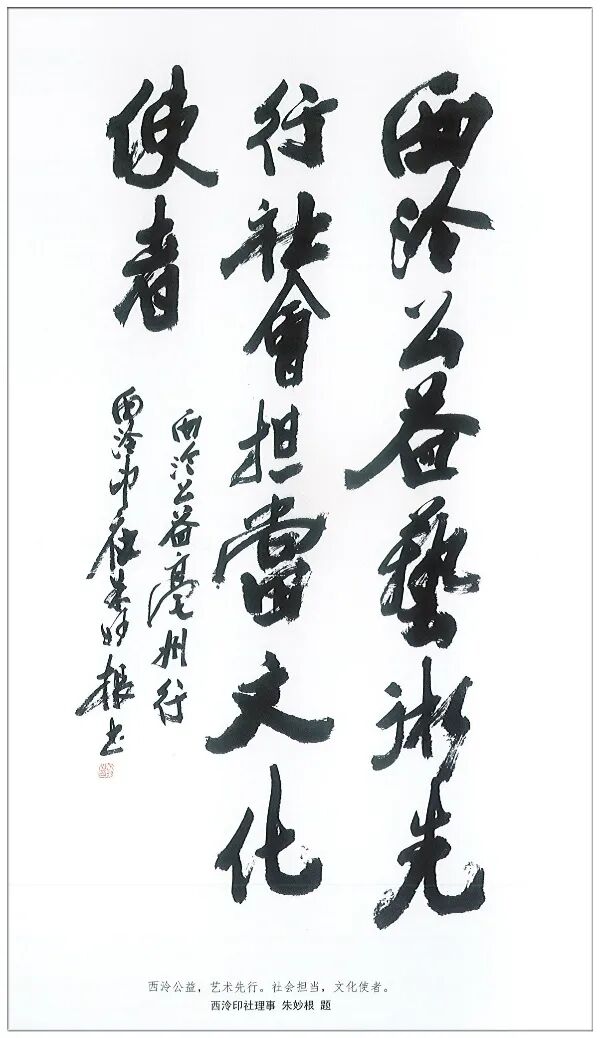 西泠公益藝術先
行社會担當文化
使者
西泠公益亳州行
西泠印社朱妙根书
西泠公益，艺术先行。社会担当，文化使者。
西泠印社理事 朱妙根 题